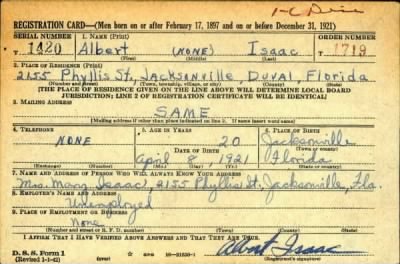 REGISTRATION CARD—(Men born on or after February 17, 1897 and on or before December 31, 1921)
SERIAL NUMBER 1. NAME (Print) ORDER NUMBER
1420 Albert (NONE) Isaac T 1719
(First) (Middle) (Last)
2. PLACE OF RESIDENCE (Print)
2155 Phyllis St, Jacksonville Duval, Florida
(Number and street) (Town, township, village, or city) (County) (State)
[THE PLACE OF RESIDENCE GIVEN ON THE LINE ABOVE WILL DETERMINE LOCAL BOARD
JURISDICTION; LINE 2 OF REGISTRATION CERTIFICATE WILL BE IDENTICAL]
3. MAILING ADDRESS
SAME
[Mailing address if other than place indicated on line 2. If same insert word same]
4. TELEPHONE 5. AGE IN YEARS 6. PLACE OF BIRTH
NONE 20 Jacksonville
DATE OF BIRTH (Town or county)
April 8, 1921 Florida
(Exchange) (Number) (Mo.) (Day) (Yr.) (State or country)
7. NAME AND ADDRESS OF PERSON WHO WILL ALWAYS KNOW YOUR ADDRESS
Mrs. Mary Isaac, 2155 Phyllis St. Jacksonville, Fla.
8. EMPLOYER'S NAME AND ADDRESS
Unemployed
9. PLACE OF EMPLOYMENT OR BUSINESS
None
(Number and street or R. F. D. number) (Town) (County) (State)
I AFFIRM THAT I HAVE VERIFIED ABOVE ANSWERS AND THAT THEY ARE TRUE.
D. S. S. Form 1
(Revised 1-1-42) (over)
Albert Isaac
(Registrant's signature)